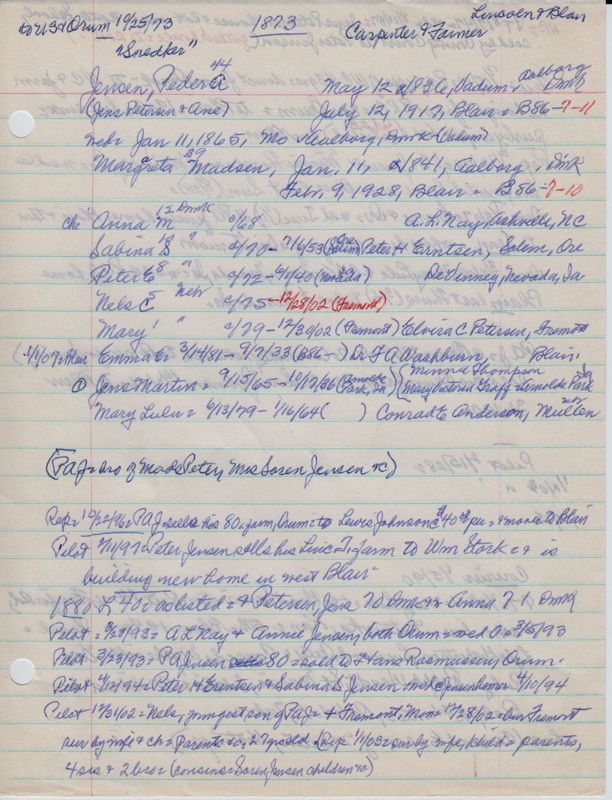 to US & Orum 10/25/73 1873 Lincoln & Blair
"Snedker" Carpenter & Farmer
Jensen, Peder A 44 May 12 1836, Vadum, Aalborg, DmK
(Jens Petersen & Ane) July 12, 1917, Blair = B86-7-11
Jan 11, 1865, DmK (Vadum)
Margreta Madsen, Jan. 11, 1841, Aalborg, DmK
Feb. 9, 1928, Blair = B86-7-10
ch: Anna M 12 DmK c/68 A.L. Kay, Ashville, NC
Sabina S 8 " c/70-7/6/53 (Salem Ore) Peter H Erntsen, Salem, Ore
Peter E 8 " c/72-6/1/40 (Nevada Ia) DeVinney, Nevada, Ia
Nels C 5 Nebr c/75-12/28/02 (Fremont)
Mary 1 " c/79-12/30/02 (Fremont) Elvira C Petersen, Fremont
Emma E = 3/14/81-9/7/33 (B86-) Dr F A Washburn, Blair
Jens Martin = 9/15/65-10/17/36 (Park, Ia) { Minnie Thompson
Graff = Arnolds Park
Mary Lulu = 6/13/79-1/16/64 ( ) Conrad E Anderson, Mullen
(PAJ = bro of Mads Peter, Mrs Soren Jensen &c)
Rep = 10/22/96 = PAJ sells his 80 a farm, Orum to Lewis Johnson @ $40 per = & moves to Blair
Pilot 97 = Peter Jensen sells his farm to Wm Stork & is
building new home in west Blair
1880 L 40 a listed = & Petersen, Jens 70 DmK & Anna 71 DmK
Pilot = 93 = A L Kay & Annie Jensen, both Orum = md O = 3/5/93
Pilot 3/23/93 = PA Jensen 80 = sold to Hans Rasmussen, Orum.
Pilot 94 = Peter H Erentsen & Sabina S Jensen = md @ Jensen home = 4/10/94
Pilot = Nels, youngest son of PAJ = & Fremont, Mon = 12/28/02 = bur Fremont
sur by wife & ch = Parents &c, = 27 yrs old. (Rep 1/03 = sur by wife, 1 child = parents,
4 sis & 2 bro = (cousins = Soren Jensen children &c)